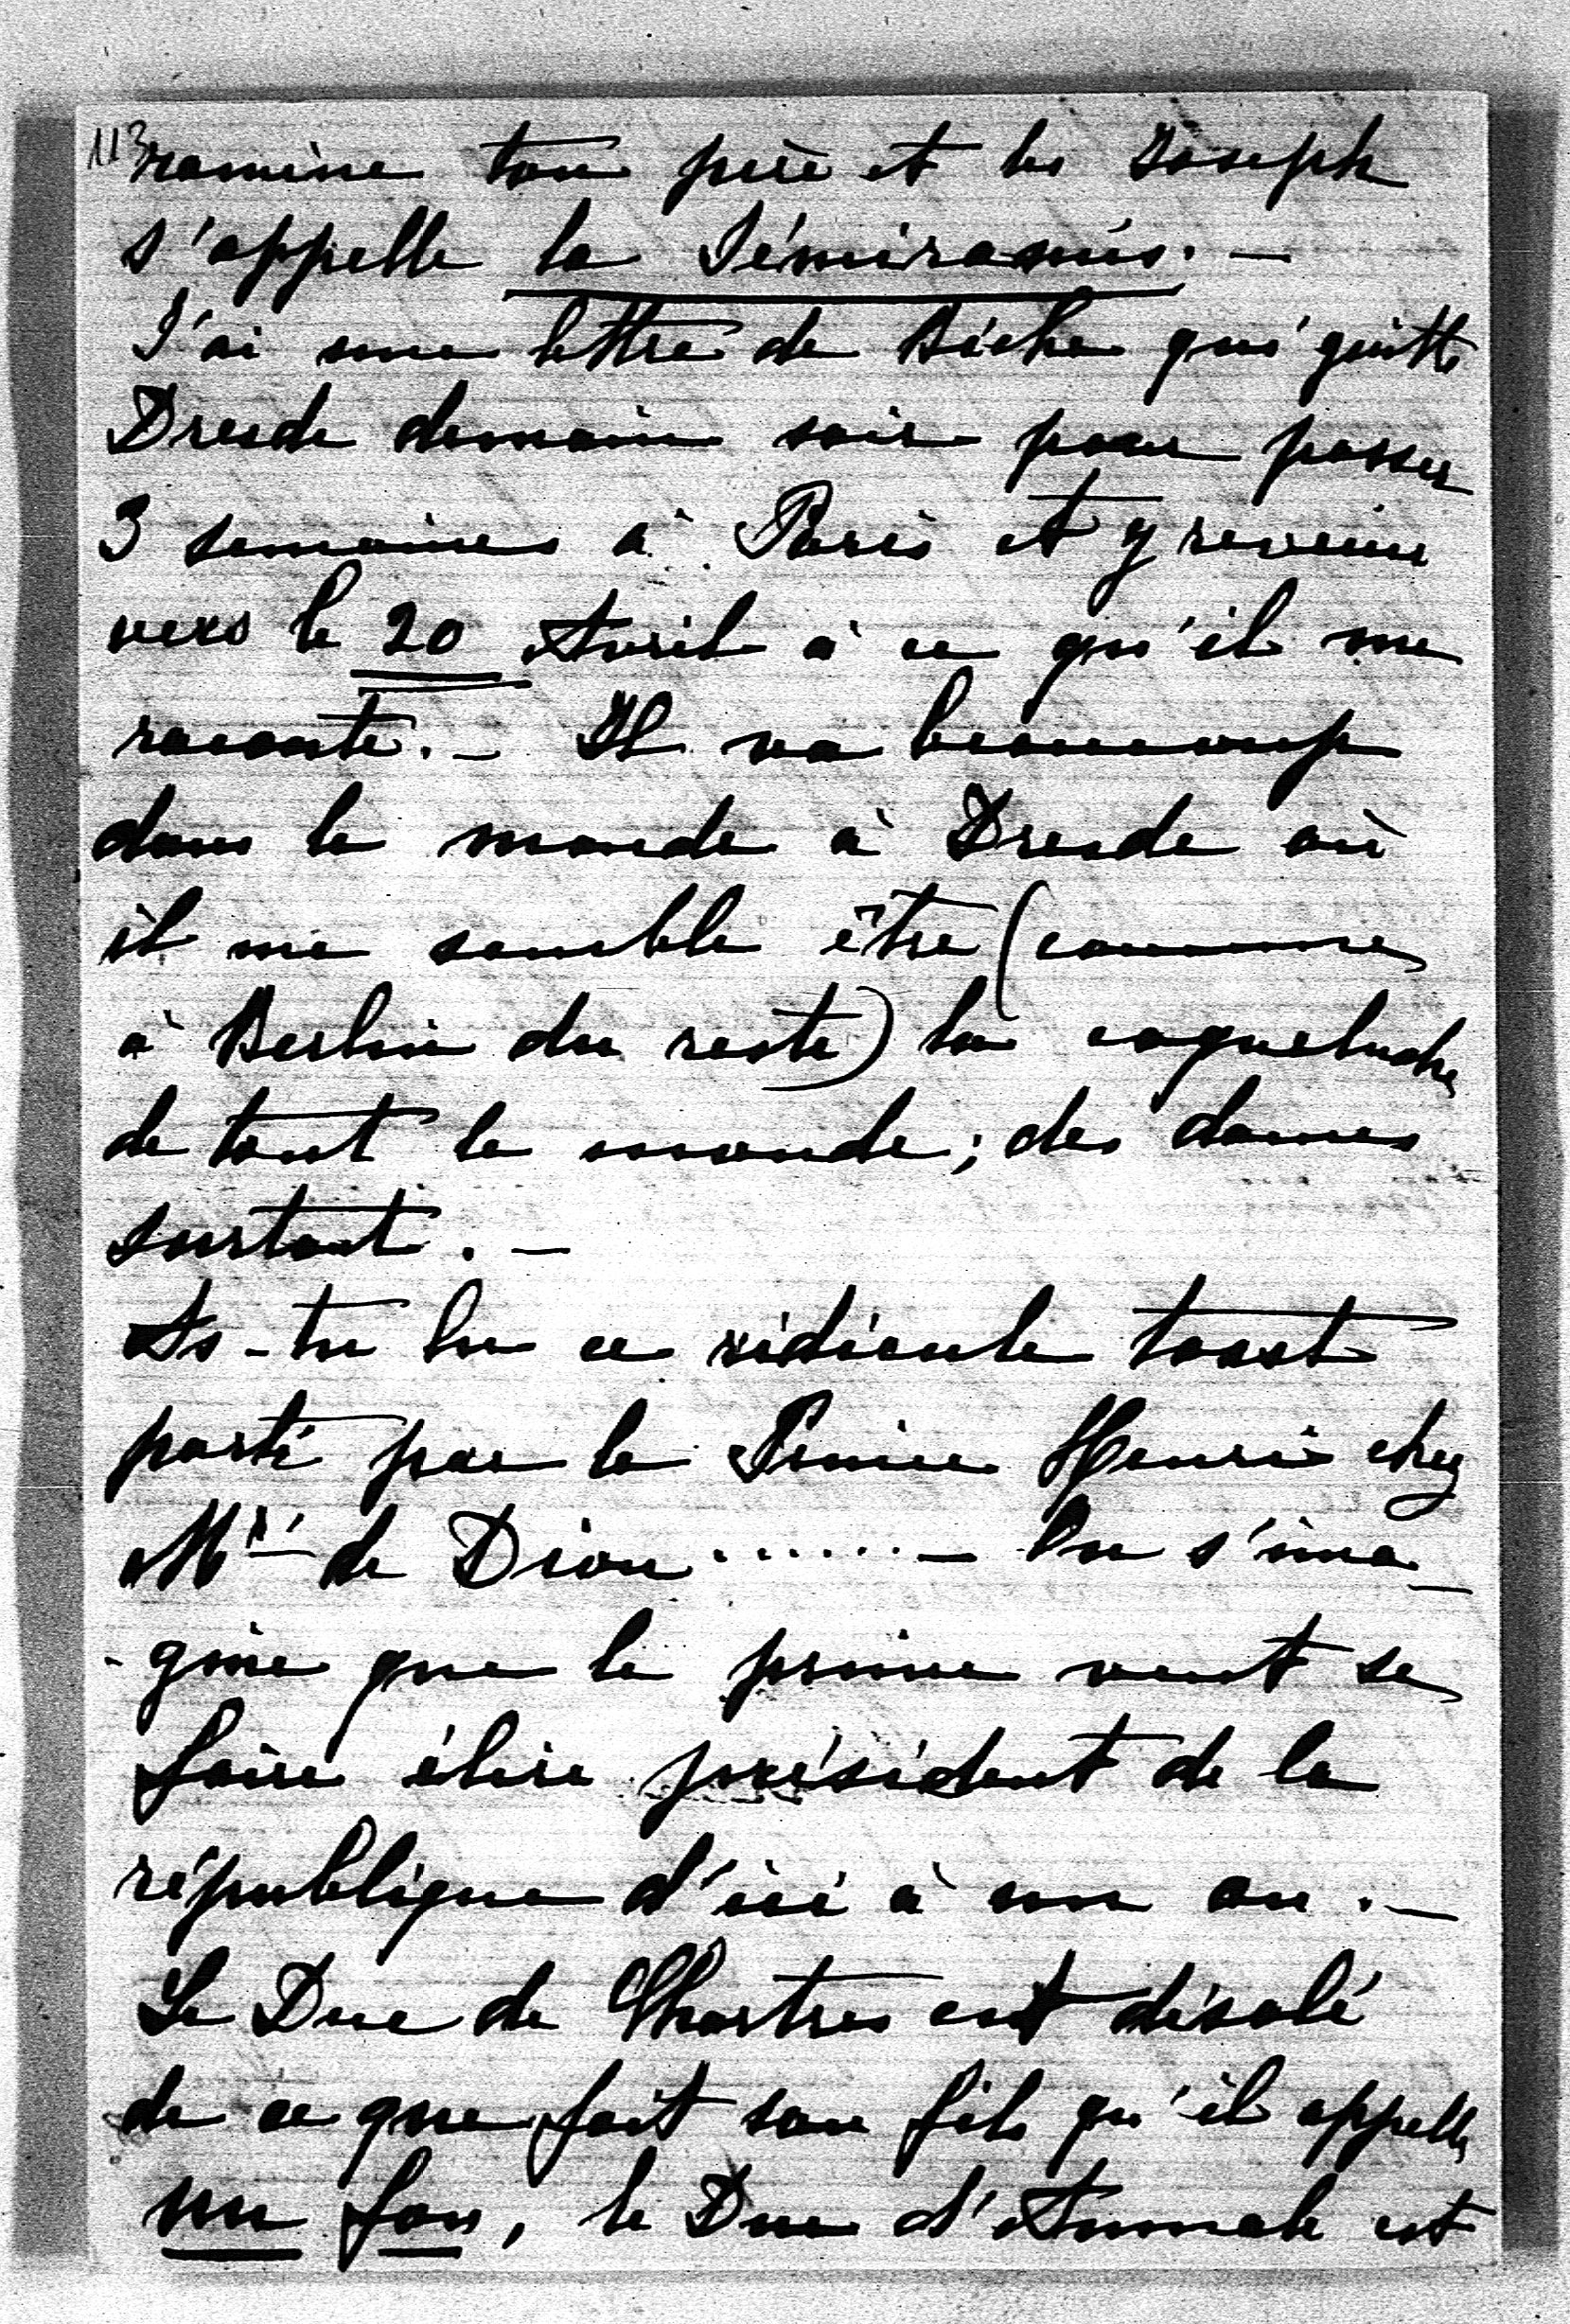 113
ramène ton père et les Joseph
s'appelle la Sémiramis. –
J'ai une lettre de Biche qui quitte
Dresde demain soir pour passer
3 semaines à Paris et y revenir
vers le 20 Avril à ce qu'il me
raconte. – Il va beaucoup
dans le monde à Dresde où
il me semble être (comme
à Berlin du reste) la coqueluche
de tout le monde ; des dames
surtout. –
As-tu lu ce ridicule toast
porté par le Prince Henri chez
Mr de Dion ....... – On s'ima-
-gine que le prince veut se
faire élire président de la
république d'ici à un an. –
Le Duc de Chartres est désolé
de ce que fait son fils qu'il appelle
un fou, le Duc d'Aumale est